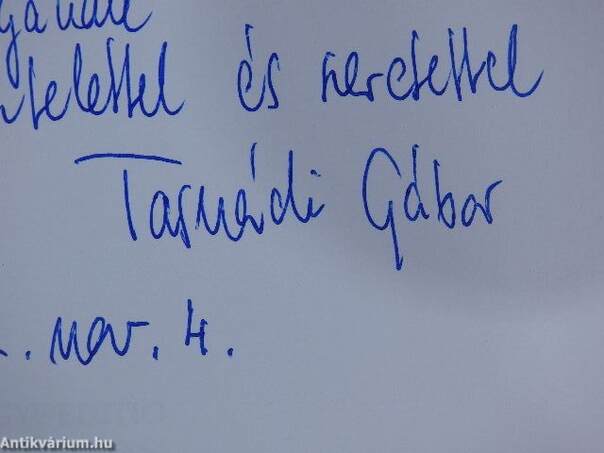 és szeretettel
Tasnádi Gábor
nov. 4.
Antikvárium.hu